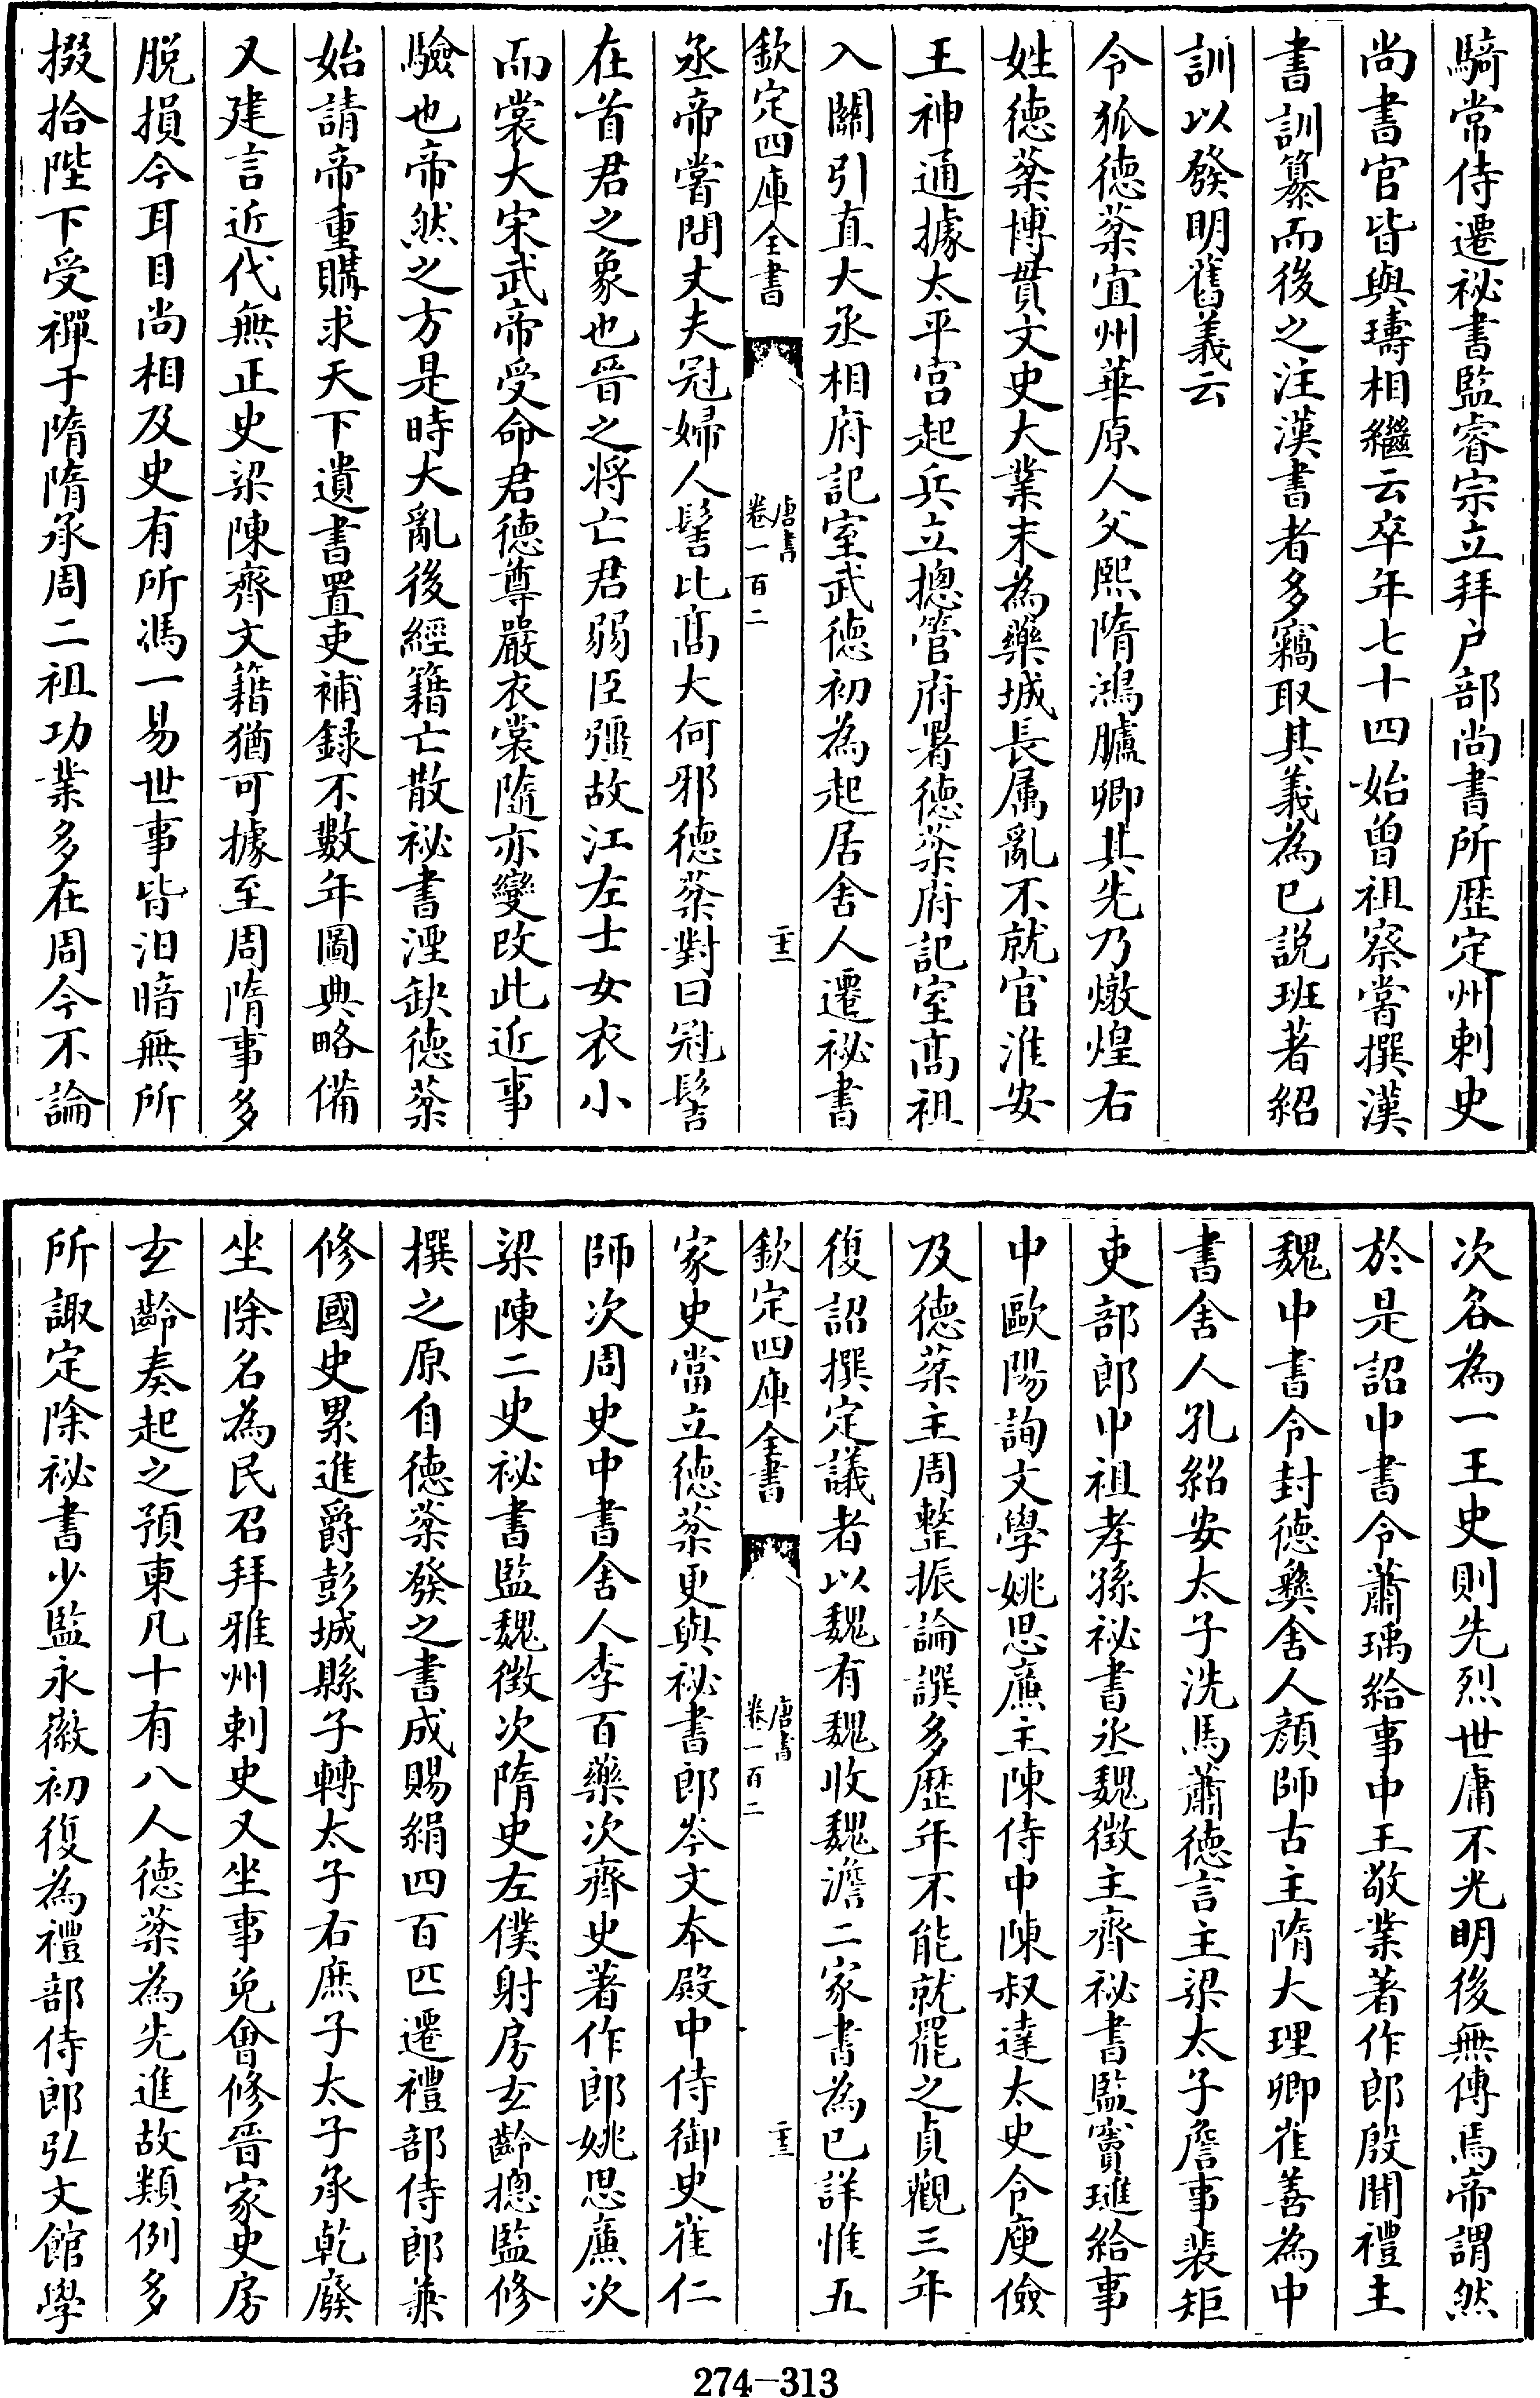 騎常侍遷祕書監睿宗立拜户部尚書所歴定州刺史
尚書官皆與璹相繼云卒年七十四始曽祖察嘗撰漢
書訓纂而後之注漢書者多竊取其義為已説班著紹
訓以發明舊義云
令狐德棻宜州華原人父熙隋鴻臚卿其先乃燉煌右
姓德棻博貫文史大業末為藥城長属亂不就官淮安
王神通據太平宫起兵立摠管府署德棻府記室髙祖
入關引直大丞相府記室武德初為起居舍人遷祕書
欽定四庫全書
唐書
卷一百二
二十三
丞帝嘗問丈夫冠婦人髻比髙大何邪德棻對曰冠髻
在首君之象也晉之将亡君弱臣彊故江左士女衣小
而裳大宋武帝受命君德尊嚴衣裳隨亦變改此近事
驗也帝然之方是時大亂後經籍亡散祕書湮缺德棻
始請帝重購求天下遺書置吏補録不數年圖典略備
又建言近代無正史梁陳齊文籍猶可據至周隋事多
脱損今耳目尚相及史有所馮一易世事皆汩暗無所
掇拾陛下受禪于隋隋承周二祖功業多在周今不論
次各為一王史則先烈世庸不光明後無傳焉帝謂然
於是詔中書令蕭瑀給事中王敬業著作郎殷聞禮主
魏中書令封德彝舍人顔師古主隋大理卿崔善為中
書舍人孔紹安太子洗馬蕭德言主梁太子詹事裴矩
吏部郎中祖孝孫祕書丞魏徴主齊祕書監竇璡給事
中歐陽詢文學姚思㢘主陳侍中陳叔達太史令庾儉
及德棻主周整振論譔多歴年不能就罷之貞觀三年
復詔撰定議者以魏有魏收魏澹二家書為已詳惟五
欽定四庫全書
唐書
卷一百二
二十三
家史當立德棻更與祕書郎岑文本殿中侍御史崔仁
師次周史中書舍人李百藥次齊史著作郎姚思㢘次
梁陳二史祕書監魏徴次隋史左僕射房玄齡摠監修
撰之原自德棻發之書成賜絹四百匹遷禮部侍郎兼
修國史累進爵彭城縣子轉太子右庶子太子承乾廢
坐除名為民召拜雅州刺史又坐事免會修晉家史房
玄齡奏起之預柬凡十有八人德棻為先進故類例多
所諏定除祕書少監永徽初復為禮部侍郎弘文館學
274-313